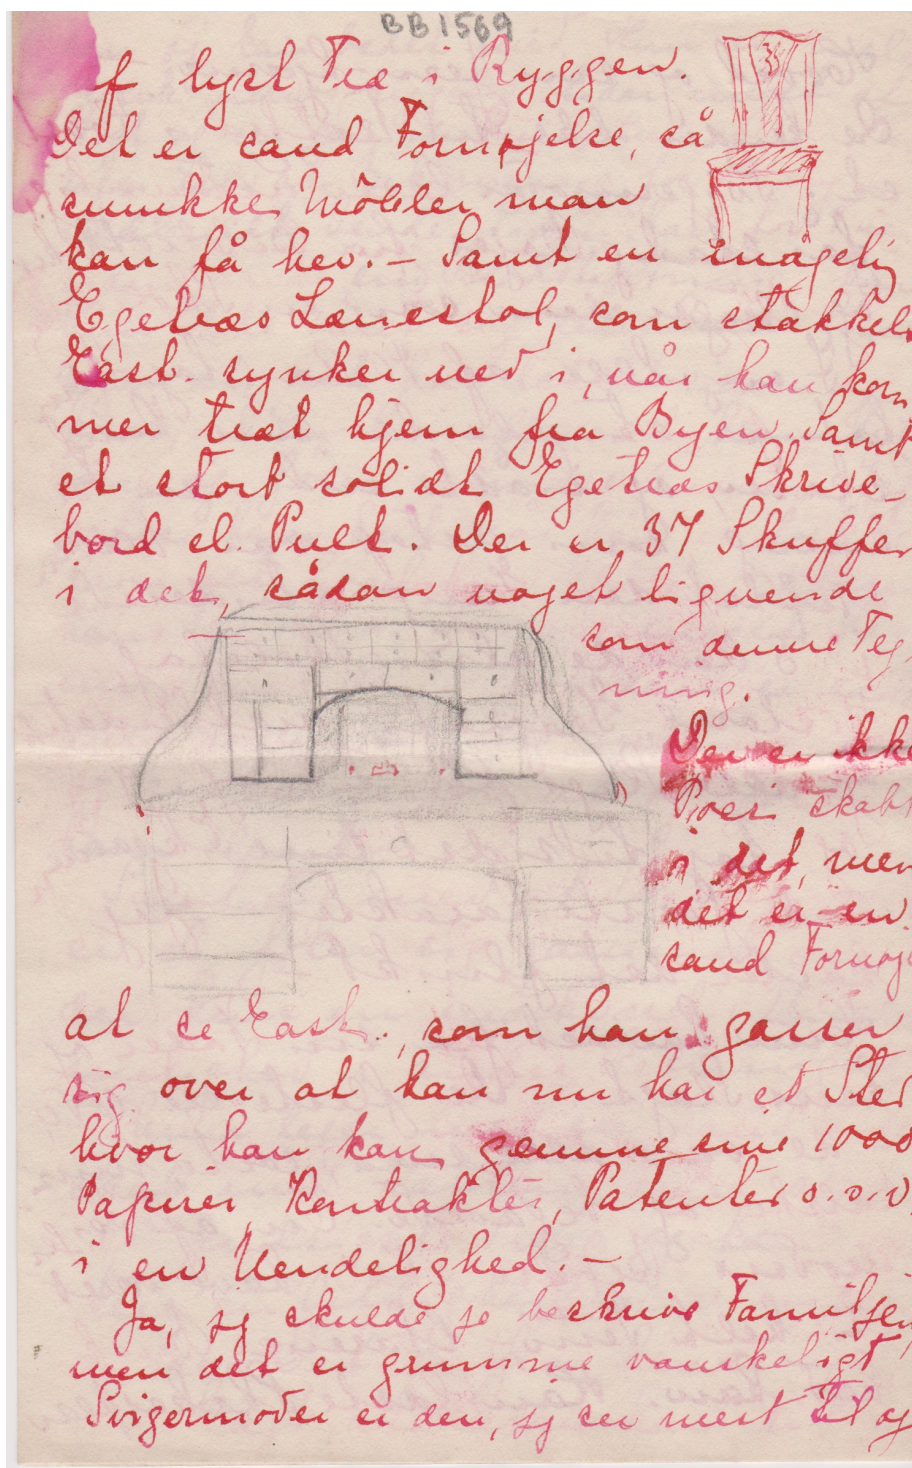 BB1569
af lyst Træ i Ryggen.
Det er sand Fornøjelse, så
smukke Möbler man
kan få her. – Samt en mågelig
Egetræs Lænestol, som stakkels
East. synker ned i, når han kom
mer træt hjem fra Byen. Samt
et stort solidt Egetræs Skrive-
bord el. Pult. Der er 37 Skuffer
i det, sådan noget lignende
som denne Teg
ning.
Der er ikke
skabt
i det, men
det er en
sand Fornøje
at se East., som han gasser
sig over at han nu har et Sted
hvor han kan gemme sine 1000
Papirer, Kontrakter, Patenter o.s.v.
i en Uendelighed. –
Ja, jeg skulde jo beskrive Familjen,
men det er grumme vanskeligt,
Svigermoder er den, jeg ser mest til og